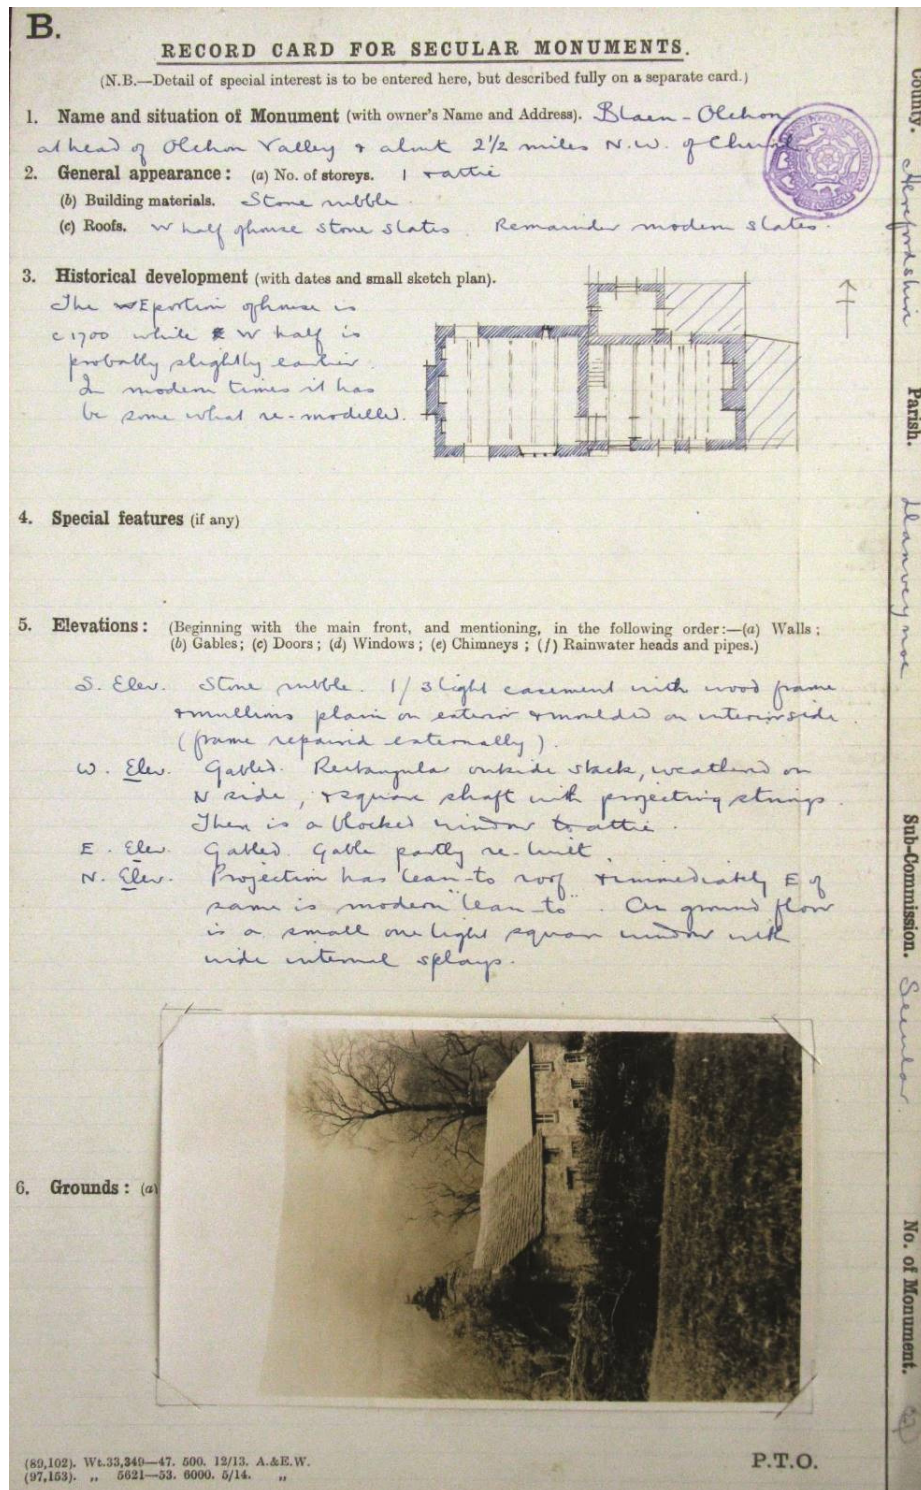 B.
RECORD CARD FOR SECULAR MONUMENTS.
(N.B.—Detail of special interest is to be entered here, but described fully on a separate card.)
1. Name and situation of Monument (with owner's Name and Address). Blaen-Olchon
at head of Olchon Valley & about 2½ miles N.W. of Church
2. General appearance: (a) No. of storeys. 1 & attic
(b) Building materials. Stone rubble.
(c) Roofs. W half of house stone slates. Remainder modern slates.
3. Historical development (with dates and small sketch plan).
The E portion of house is
c 1700 while W half is
probably slightly earlier.
In modern times it has
be some what re-modelled.
4. Special features (if any)
5. Elevations: (Beginning with the main front, and mentioning, in the following order:—(a) Walls;
(b) Gables; (c) Doors; (d) Windows; (e) Chimneys; (f) Rainwater heads and pipes.)
S. Elev. Stone rubble. 1/3 light casement with wood frame
& mullions plain on exterior & moulded on interior side.
(frame repaired externally).
W. Elev. Gabled. Rectangular outside stack, weathered on
N side, & square shaft with projecting strings.
There is a blocked window to attic.
E. Elev. Gabled. Gable partly re-built.
N. Elev. Projection has lean-to roof & immediately E of
same is modern "lean-to". On ground floor
is a small one light square window with
wide internal splays.
6. Grounds: (a)
(89,102). Wt.33,349—47. 500. 12/13. A.&E.W.
(97,153). „ 5621—53. 6000. 5/14. „
P.T.O.
County. Herefordshire
Parish. Llanveynoe
Sub-Commission. Secular.
No. of Monument.